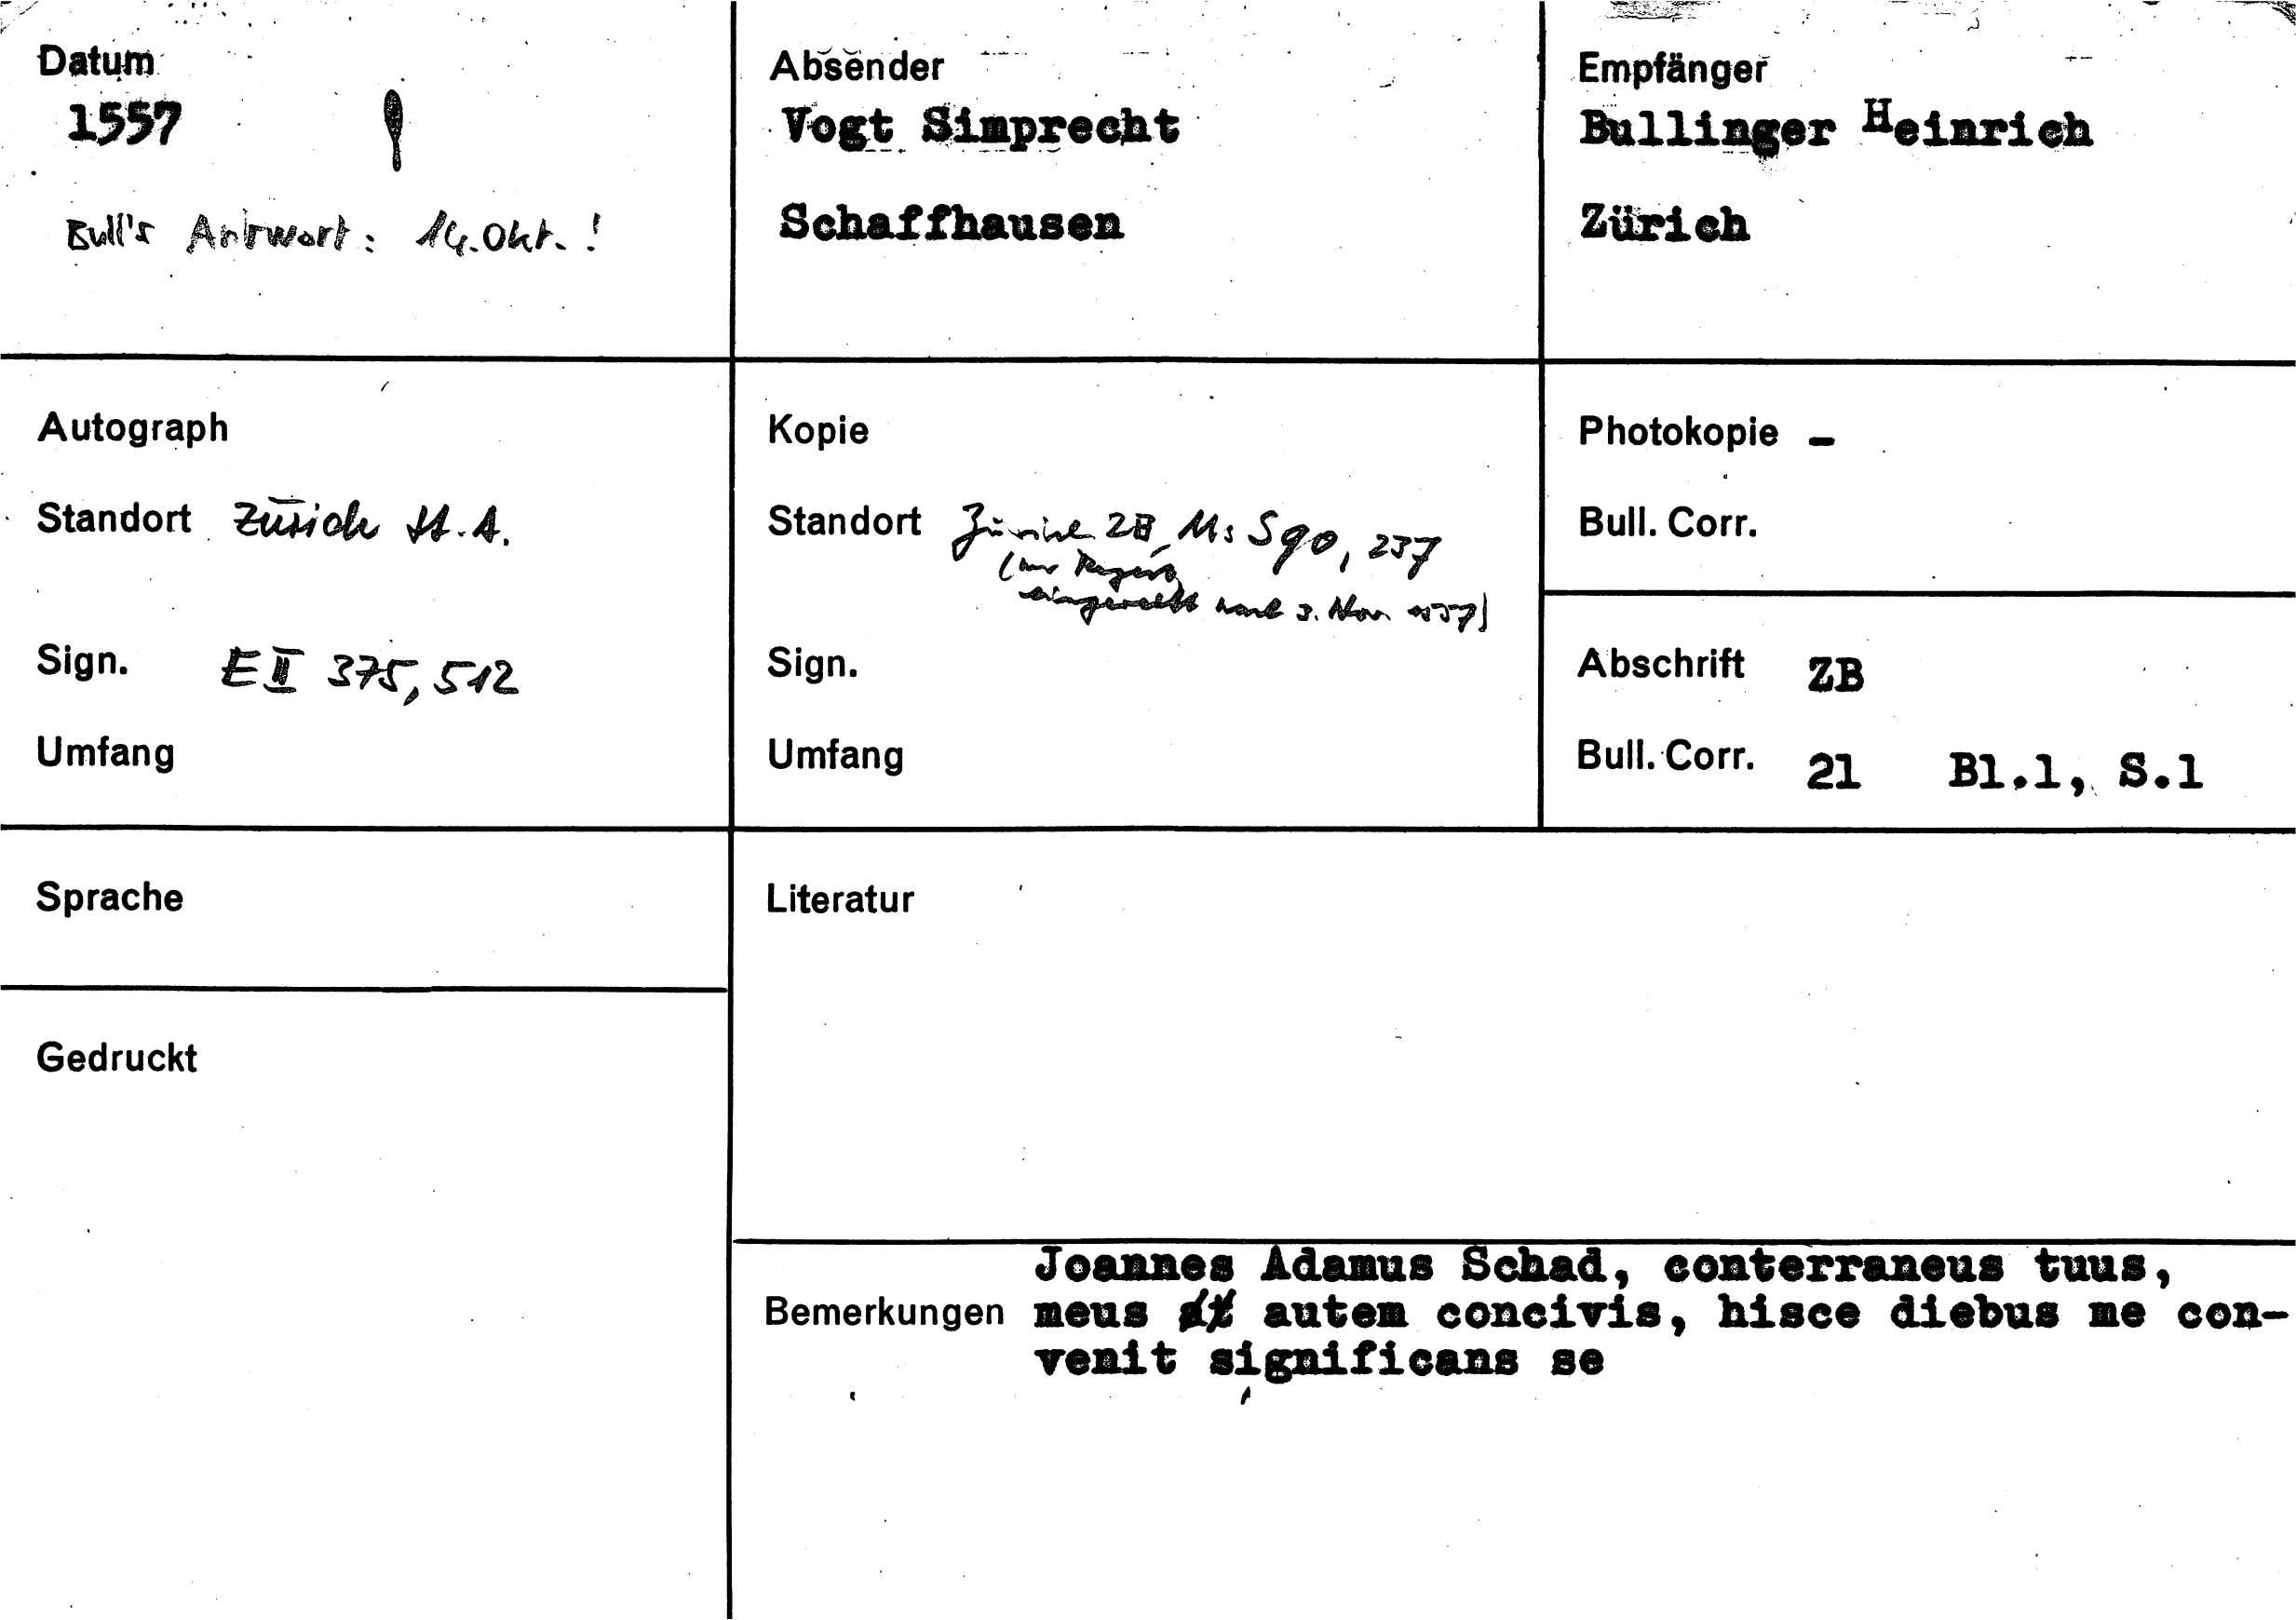 Datum
1557
Bull's Antwort: 14. Okt. !
Absender
Vogt Simprecht
Schaffhausen
Empfänger
Bullinger Heinrich
Zürich
Autograph
Standort Zürich St. A.
Sign. E II 375, 512
Umfang
Kopie
Standort Zürich ZB, Ms S 90, 237
(nur Regest,
eingereiht nach 3. Nov 1557)
Sign.
Umfang
Photokopie -
Bull. Corr.
Abschrift ZB
Bull. Corr. 21 Bl.1, S.1
Sprache
Gedruckt
Literatur
Bemerkungen
Joannes Adamus Schad, conterraneus tuus,
meus autem concivis, hisce diebus me con-
venit significans se